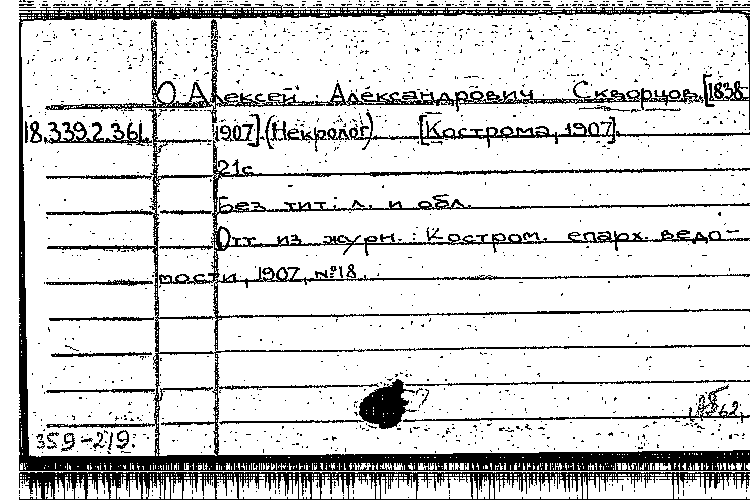 О Алексей Александрович Скворцов [1838-
18.339.2.361. 1907]. (Некролог). [Кострома, 1907].
21с.
Без тит. л. и обл.
Отт. из журн.: Костром. епарх. ведо-
мости, 1907, №18.
359-219.